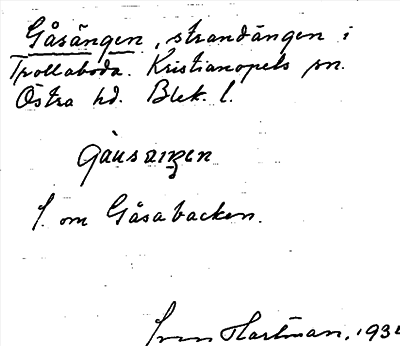 Gåsängen, strandängen i
Trollaboda. Kristianopels sn.
Östra hd. Blek. l.
S. om Gåsabacken.
Sven Hartman, 193